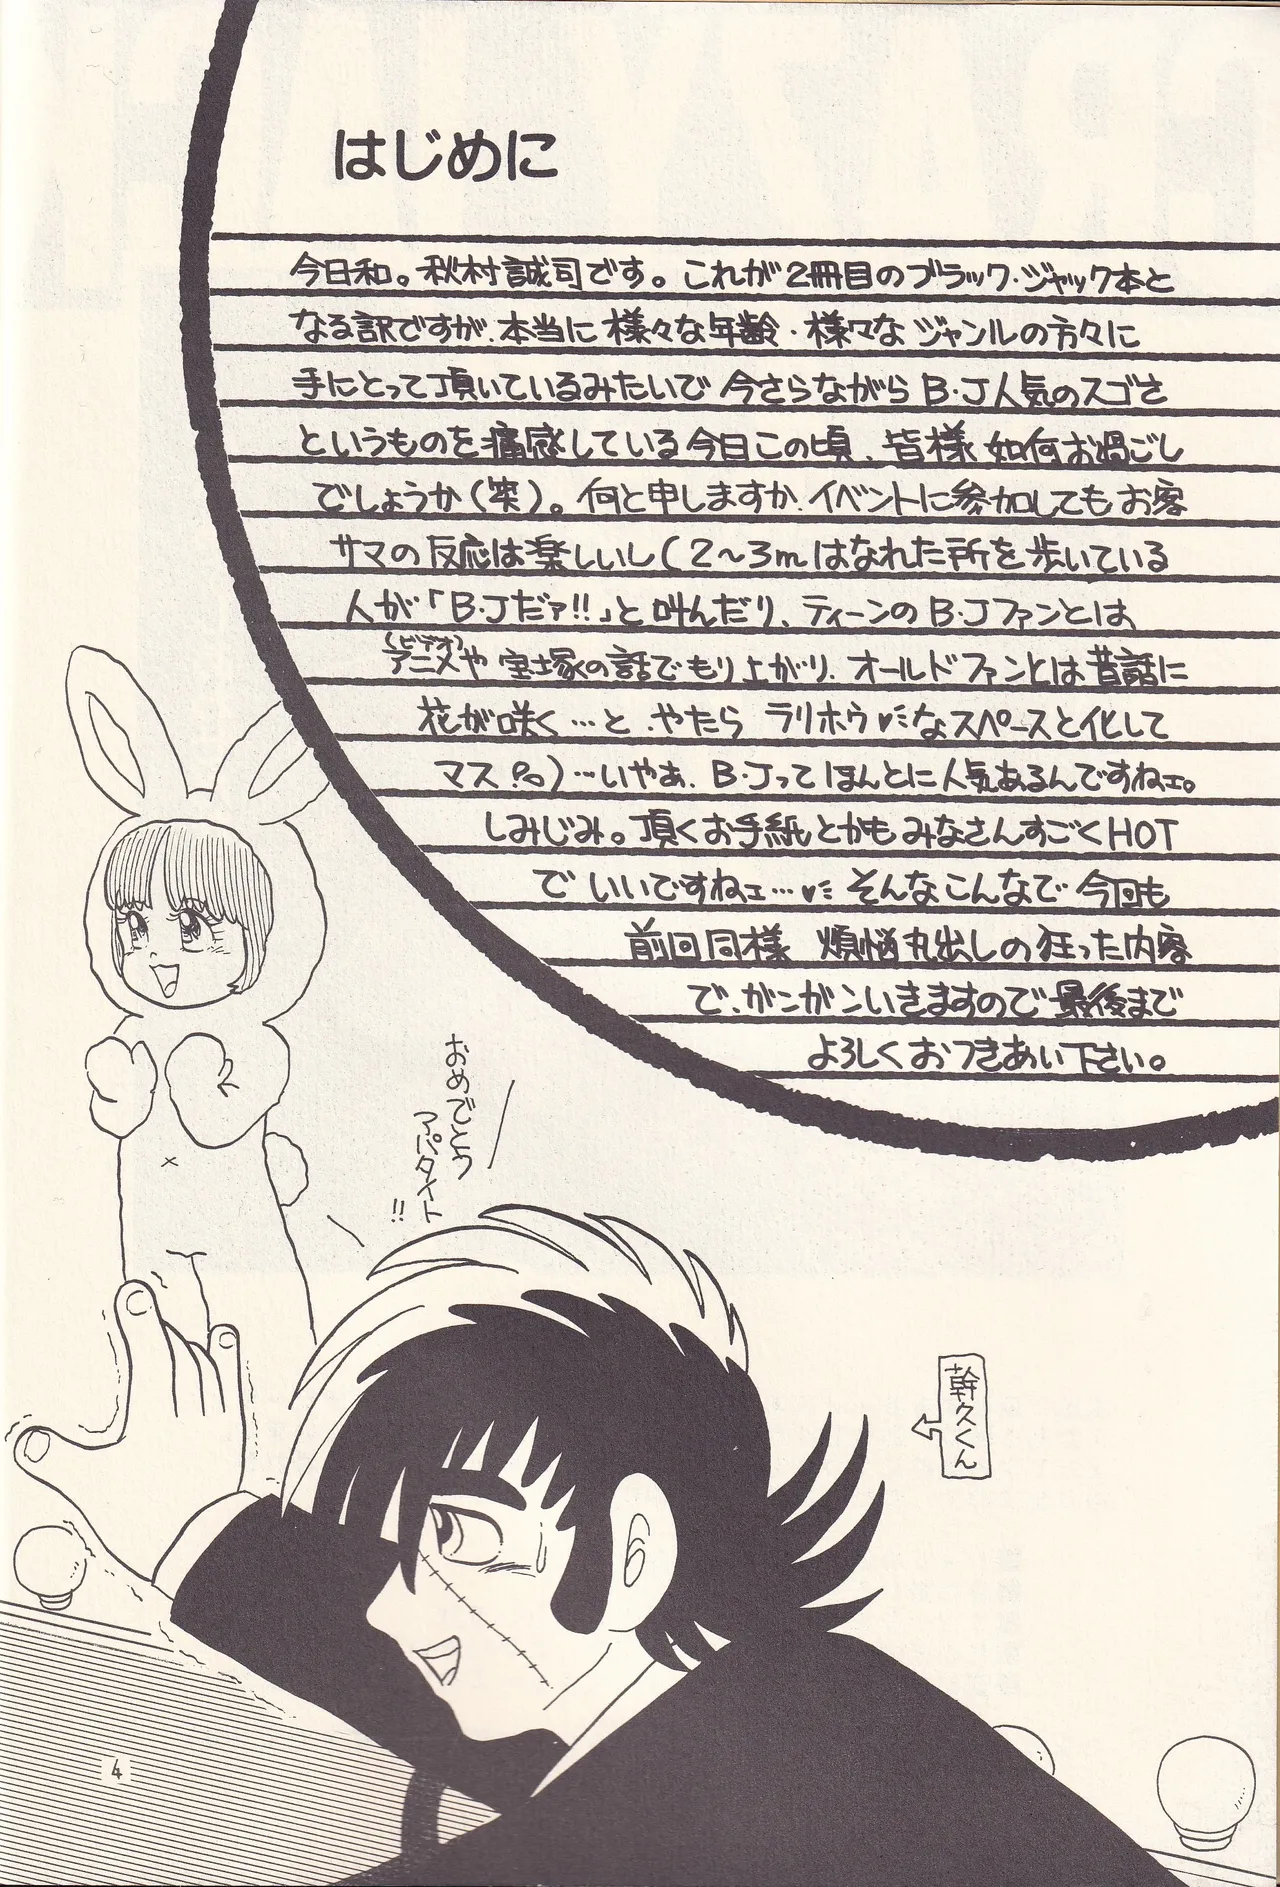 はじめに
今日和。秋村誠司です。これが2冊目のブラック・ジャック本と
なる訳ですが、本当に様々な年齢・様々なジャンルの方々に
手にとって頂いているみたいで今さらながらB・J人気のスゴさ
というものを痛感している今日この頃、皆様如何お過ごし
でしょうか(笑)。何と申しますか、イベントに参加してもお客
サマの反応は楽しいし(2〜3mはなれた所を歩いている
人が「B・Jだァ!!」と叫んだり、ティーンのB・Jファンとは、
(ビデオ)
アニメや宝塚の話でもり上がり、オールドファンとは昔話に
花が咲く…と、やたらラリホウ♥なスペースと化して
マス)…いやあ、B・Jってほんとに人気あるんですねェ。
しみじみ。頂くお手紙とかもみなさんすごくHOT
でいいですねェ…♥そんなこんなで今回も
前回同様 煩悩丸出しの狂った内容
で、ガンガンいきますので最後まで
よろしくおつきあい下さい。
おめでとう
アパタイト
!!
幹久くん
4